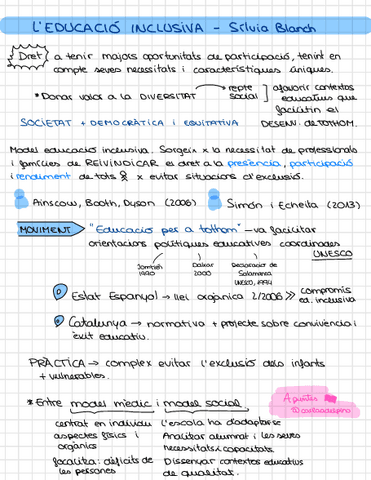 L'EDUCACIÓ INCLUSIVA - Sílvia Blanch
Dret a tenir majors oportunitats de participació, tenint en
compte seves necessitats i característiques úniques.
*Donar valor a la DIVERSITAT → repte social ] afavorir contextos
educatius que
facilitin el
SOCIETAT + DEMOCRÀTICA i EQUITATIVA DESENV. de TOTHOM.
Model educació inclusiva. Sorgeix x la necessitat de professionals
i famílies de REIVINDICAR el dret a la presència, participació
i rendiment de tots x evitar situacions d'exclusió.
Ainscow, Booth, Dyson (2006) Simón i Echeita (2013)
MOVIMENT "Educació per a tothom" - va facilitar
orientacions polítiques educatives coordinades
UNESCO
Jomtien 1990 Dakar 2000 Declaració de Salamanca UNESCO, 1994
Estat Espanyol → llei orgànica 2/2006 >> compromís
ed. inclusiva
Catalunya → normativa + projecte sobre convivència i
èxit educatiu.
PRÀCTICA → complex evitar l'exclusió dels infants
+ vulnerables.
*Entre model mèdic i model social
Apuntes
centrat en individu l'escola ha d'adaptar-se
aspectes físics i Analitzar alumnat i les seves
orgànics necessitats i capacitats
focalitza: dèficits de Dissenyar contextos educatius
les persones de qualitat.